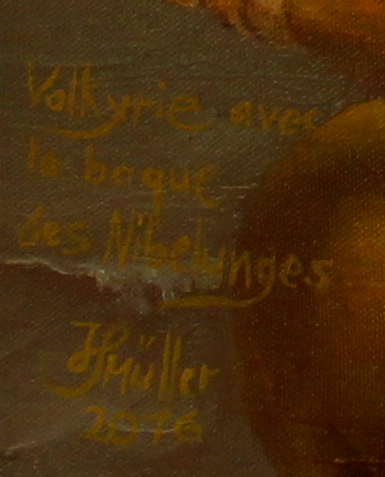 Valkyrie avec
la bague
des Nibelunges
HMüller
2016